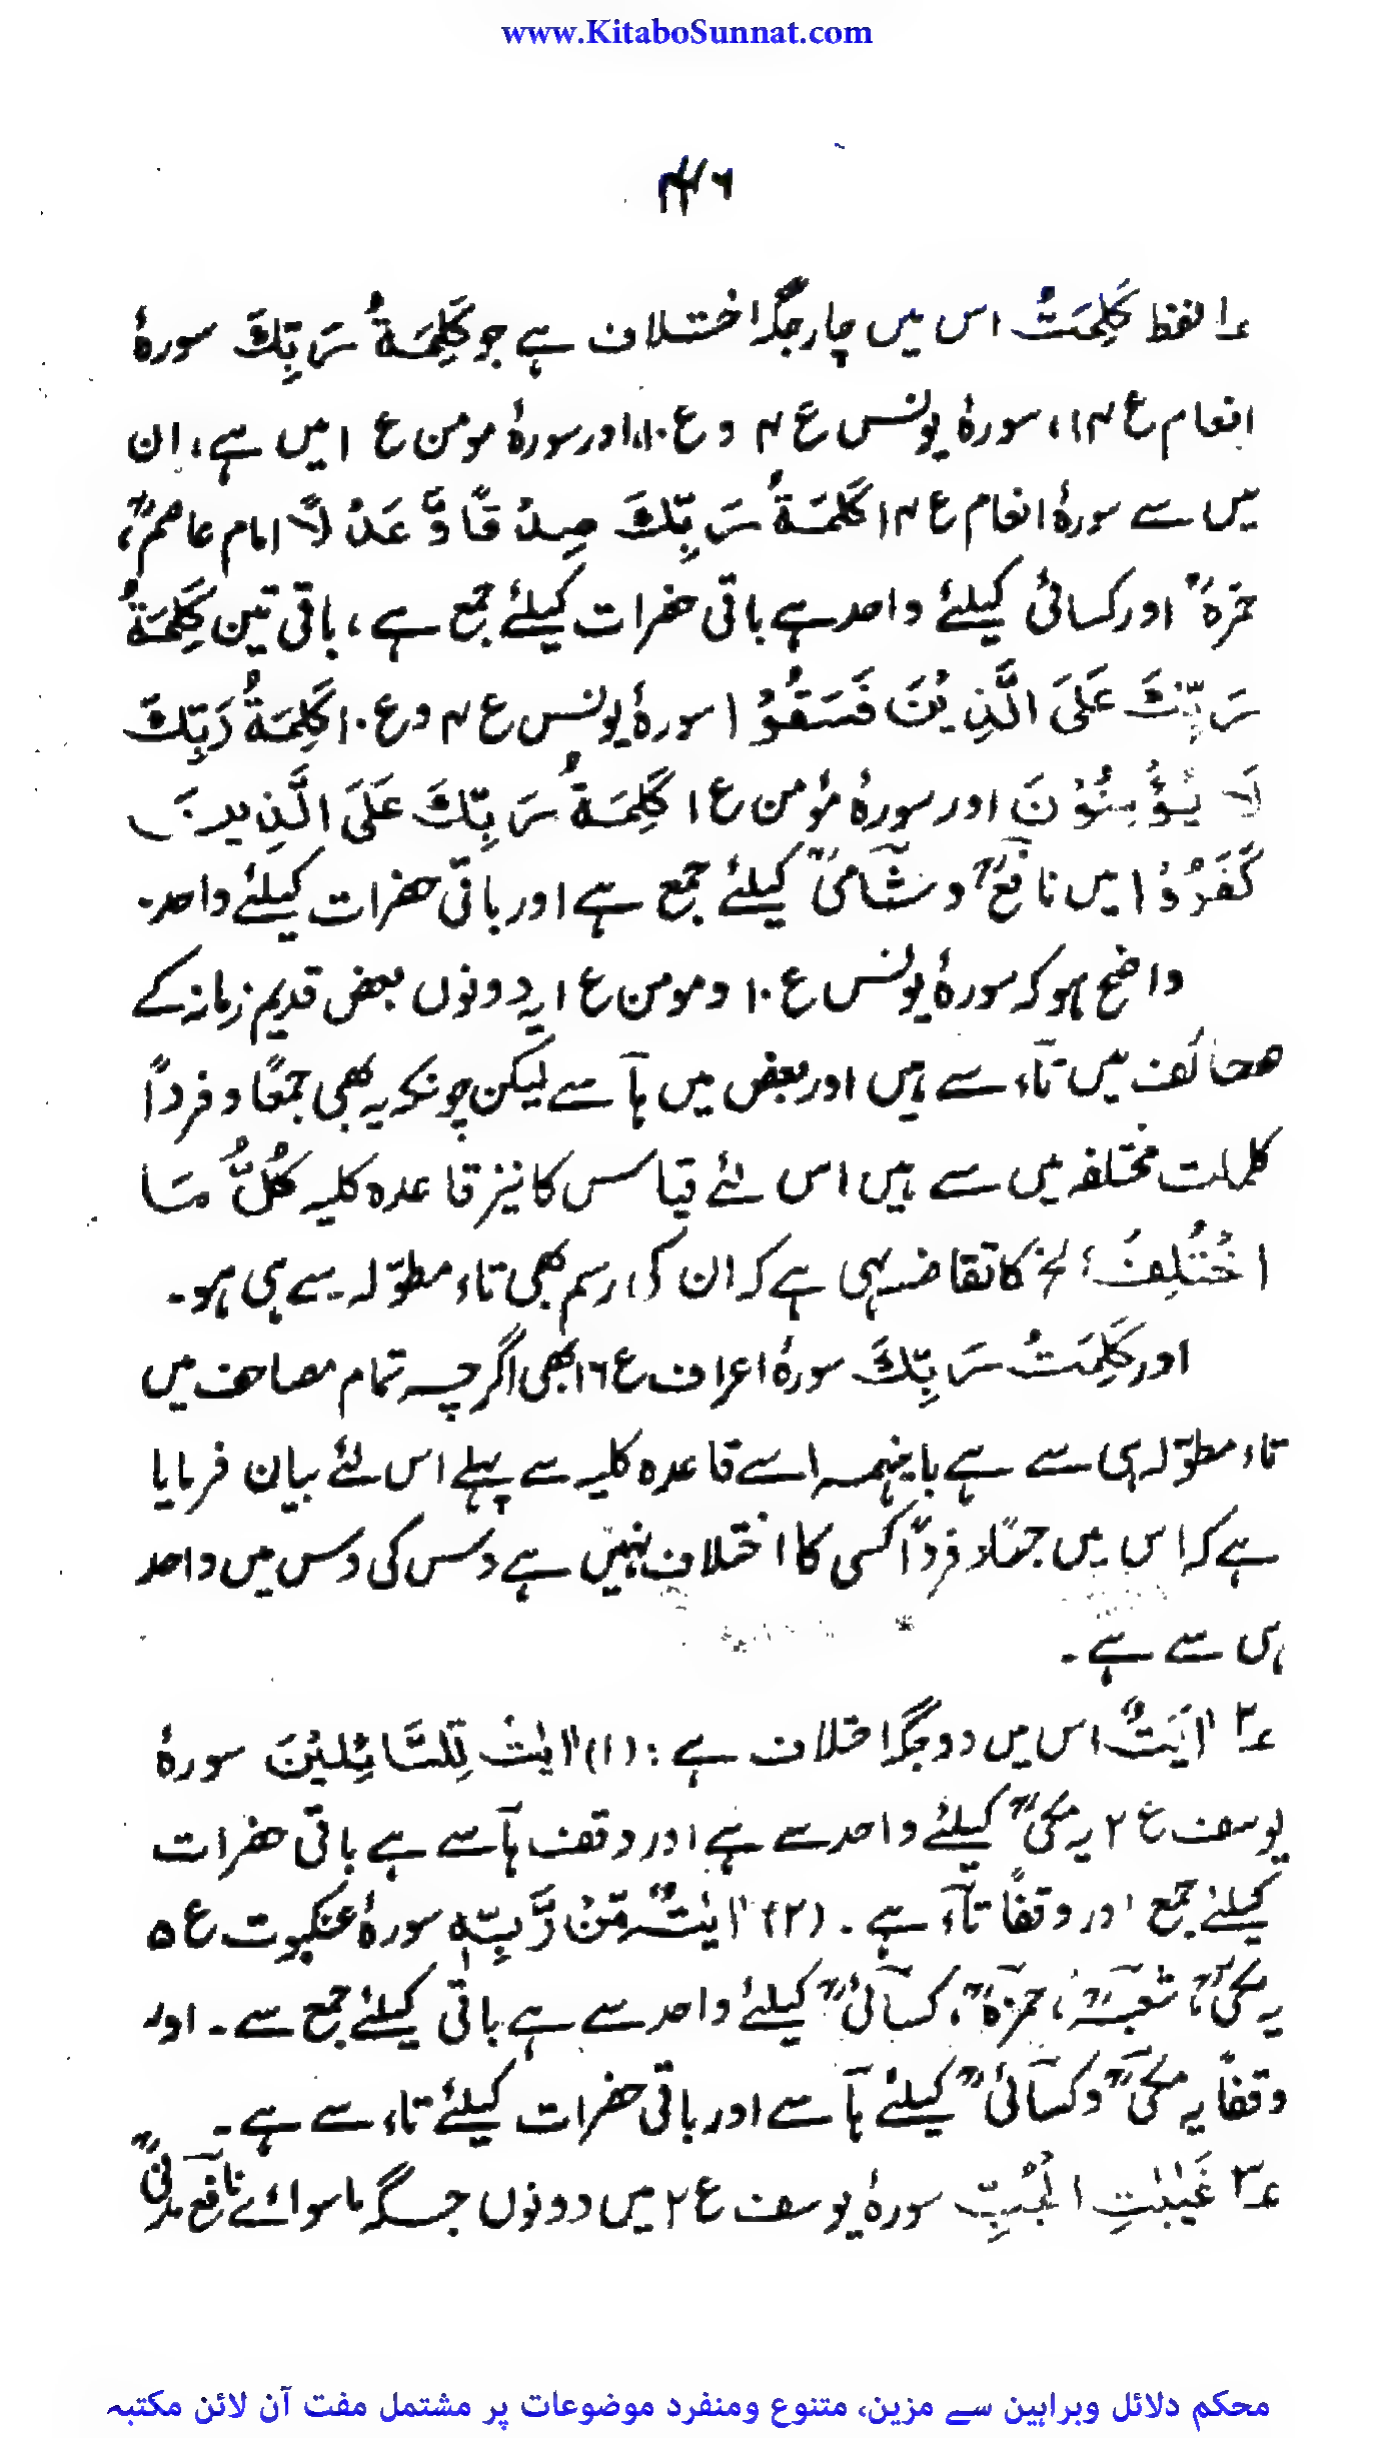 www.KitaboSunnat.com
؁۱ لفظ کَلِمَتُ اس میں چار جگہ اختلاف ہے جو کَلِمَۃُ رَبِّكَ سورۂ
انعام ع ۱۴، سورۂ یونس ع ۴ و ع ۱۰، اور سورۂ مومن ع ۱ میں ہے، ان
میں سے سورۂ انعام ع ۱۴ کَلِمَۃُ رَبِّكَ صِدْقًا وَّعَدْلًا امام عاصمؒ،
حمزہؒ اور کسائی کیلئے واحد ہے باقی حضرات کیلئے جمع ہے، باقی تین کَلِمَۃُ
رَبِّكَ عَلَی الَّذِیْنَ فَسَقُوْا سورۂ یونس ع ۴ و ع ۱۰ کَلِمَۃُ رَبِّكَ
لَا یُؤْمِنُوْنَ اور سورۂ مؤمن ع ۱ کَلِمَۃُ رَبِّكَ عَلَی الَّذِینَ
کَفَرُوْا میں نافعؒ و شامیؒ کیلئے جمع ہے اور باقی حضرات کیلئے واحد۔
واضح ہو کہ سورۂ یونس ع ۱۰ و مومن ع ۱ یہ دونوں بعض قدیم زمانہ کے
صحائف میں تآء سے ہیں اور بعض میں ہآ سے لیکن چونکہ یہ بھی جمعًا و فردًا
کلمات مختلفہ میں سے ہیں اس لئے قیاس کا نیز قاعدہ کلیہ کُلُّ مَا
اخْتُلِفَ الخ کا تقاضہ یہی ہے کہ ان کی رسم بھی تاء مطوّلہ سے ہی ہو۔
اور کَلِمَتُ رَبِّكَ سورۂ اعراف ع ۱۶ بھی اگرچہ تمام مصاحف میں
تاء مطوّلہ ہی سے ہے باینہمہ اسے قاعدہ کلیہ سے پہلے اس لئے بیان فرمایا
ہے کہ اس میں جمعًا و فردًا کسی کا اختلاف نہیں ہے دس کی دس میں واحد
ہی سے ہے۔
؁۲ اٰیَتٌ اس میں دو جگہ اختلاف ہے: (۱) اٰیٰتٌ لِّلسَّآئِلِیْنَ سورۂ
یوسف ع ۲ یہ مکیؒ کیلئے واحد سے ہے اور وقف ہآ سے ہے باقی حضرات
کیلئے جمع اور وقفًا تآء ہے۔ (۲) اٰیٰتٌ مِّنْ رَّبِّہٖ سورۂ عنکبوت ع ۵
یہ مکیؒ، شعبہؒ، حمزہؒ، کسآئیؒ کیلئے واحد سے ہے باقی کیلئے جمع سے۔ اور
وقفًا یہ مکیؒ و کسآئیؒ کیلئے ہآ سے اور باقی حضرات کیلئے تاء سے ہے۔
؁۳ غَیٰبٰتِ الْجُبِّ سورۂ یوسف ع ۲ میں دونوں جگہ ماسوائے نافع مدنیؒ
محکم دلائل وبراہین سے مزین، متنوع ومنفرد موضوعات پر مشتمل مفت آن لائن مکتبہ